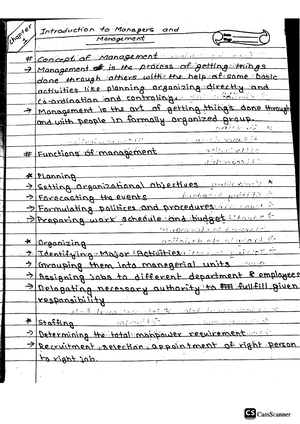 Chapter 1
Introduction to Managers and
Management
# Concept of Management
→ Management is the process of getting things
done through others with the help of some basic
activities like planning organizing directly and
co-ordination and controling.
→ Management is the art of getting things done through
and with people in formally organized group.
# Functions of management
* Planning
→ Setting Organizational objectives
→ Forecasting the events
→ Formulating politices and procedures
→ Preparing work schedule and budget
* Organizing
→ Identifying Major Activities
→ Grouping them into managerial units
→ Assigning jobs to different department & employees
→ Delagating necessary authority to fullfill given
responsibility
* Staffing
→ Determining the total manpower requirement
→ Recruitment, selection, appointment of right person
to right job.
CS CamScanner